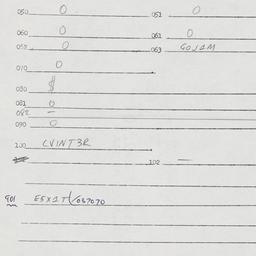 050 0 051 0
060 0 061 0
052 0 063 GOJAM
070 0
080
081 0
082 —
090 0
100 LVINT3R
102 —
901 E5X1T 057070